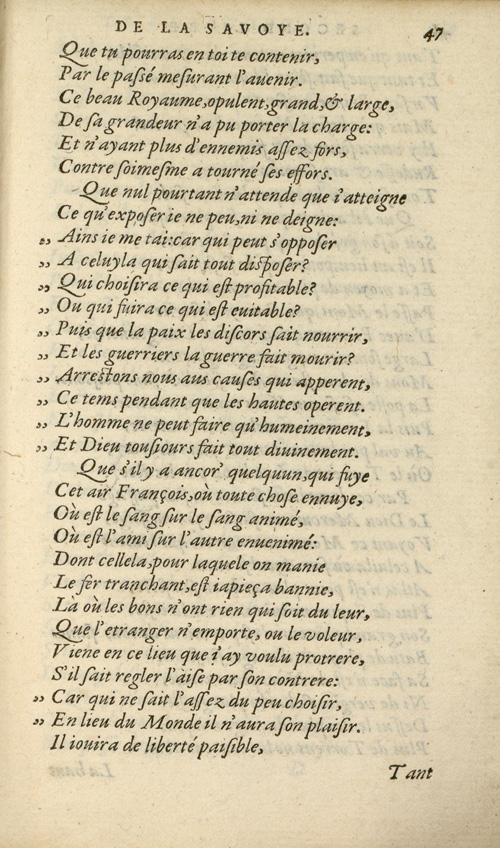 DE LA SAVOYE. 47
Que tu pourras en toi te contenir,
Par le paſſé meſurant l'auenir.
Ce beau Royaume, opulent, grand, & large,
De ſa grandeur n'a pu porter la charge:
Et n'ayant plus d'ennemis aſſez fors,
Contre ſoimeſme a tourné ſes effors.
Que nul pourtant n'attende que i'atteigne
Ce qu'expoſer ie ne peu, ni ne deigne:
„ Ains ie me tai: car qui peut s'oppoſer
„ A celuyla qui fait tout diſpoſer?
„ Qui choiſira ce qui eſt profitable?
„ Ou qui fuira ce qui eſt euitable?
„ Puis que la paix les diſcors fait nourrir,
„ Et les guerriers la guerre fait mourir?
„ Arreſtons nous aus cauſes qui apperent,
„ Ce tems pendant que les hautes operent.
„ L'homme ne peut faire qu'humeinement,
„ Et Dieu touſiours fait tout diuinement.
Que s'il y a ancor' quelquun, qui fuye
Cet air François, où toute choſe ennuye,
Où eſt le ſang ſur le ſang animé,
Où eſt l'ami ſur l'autre enuenimé:
Dont cellela, pour laquele on manie
Le fer tranchant, eſt iapieça bannie,
La où les bons n'ont rien qui ſoit du leur,
Que l'etranger n'emporte, ou le voleur,
Viene en ce lieu que i'ay voulu protrere,
S'il ſait regler l'aiſe par ſon contrere:
„ Car qui ne ſait l'aſſez du peu choiſir,
„ En lieu du Monde il n'aura ſon plaiſir.
Il iouira de liberté paiſible,
Tant